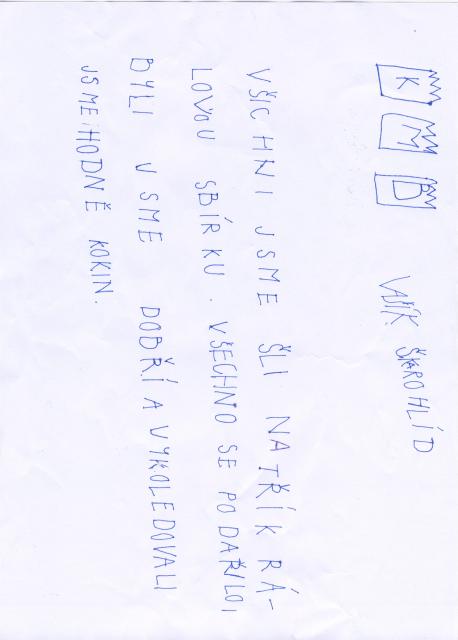 K M B
VAŠÍK ŠKAROHLÍD
VŠICHNI JSME ŠLI NA TŘÍKRÁ-
LOVOU SBÍRKU. VŠECHNO SE PODAŘILO,
BYLI JSME DOBŘÍ A VYKOLEDOVALI
JSME HODNĚ KOKIN.